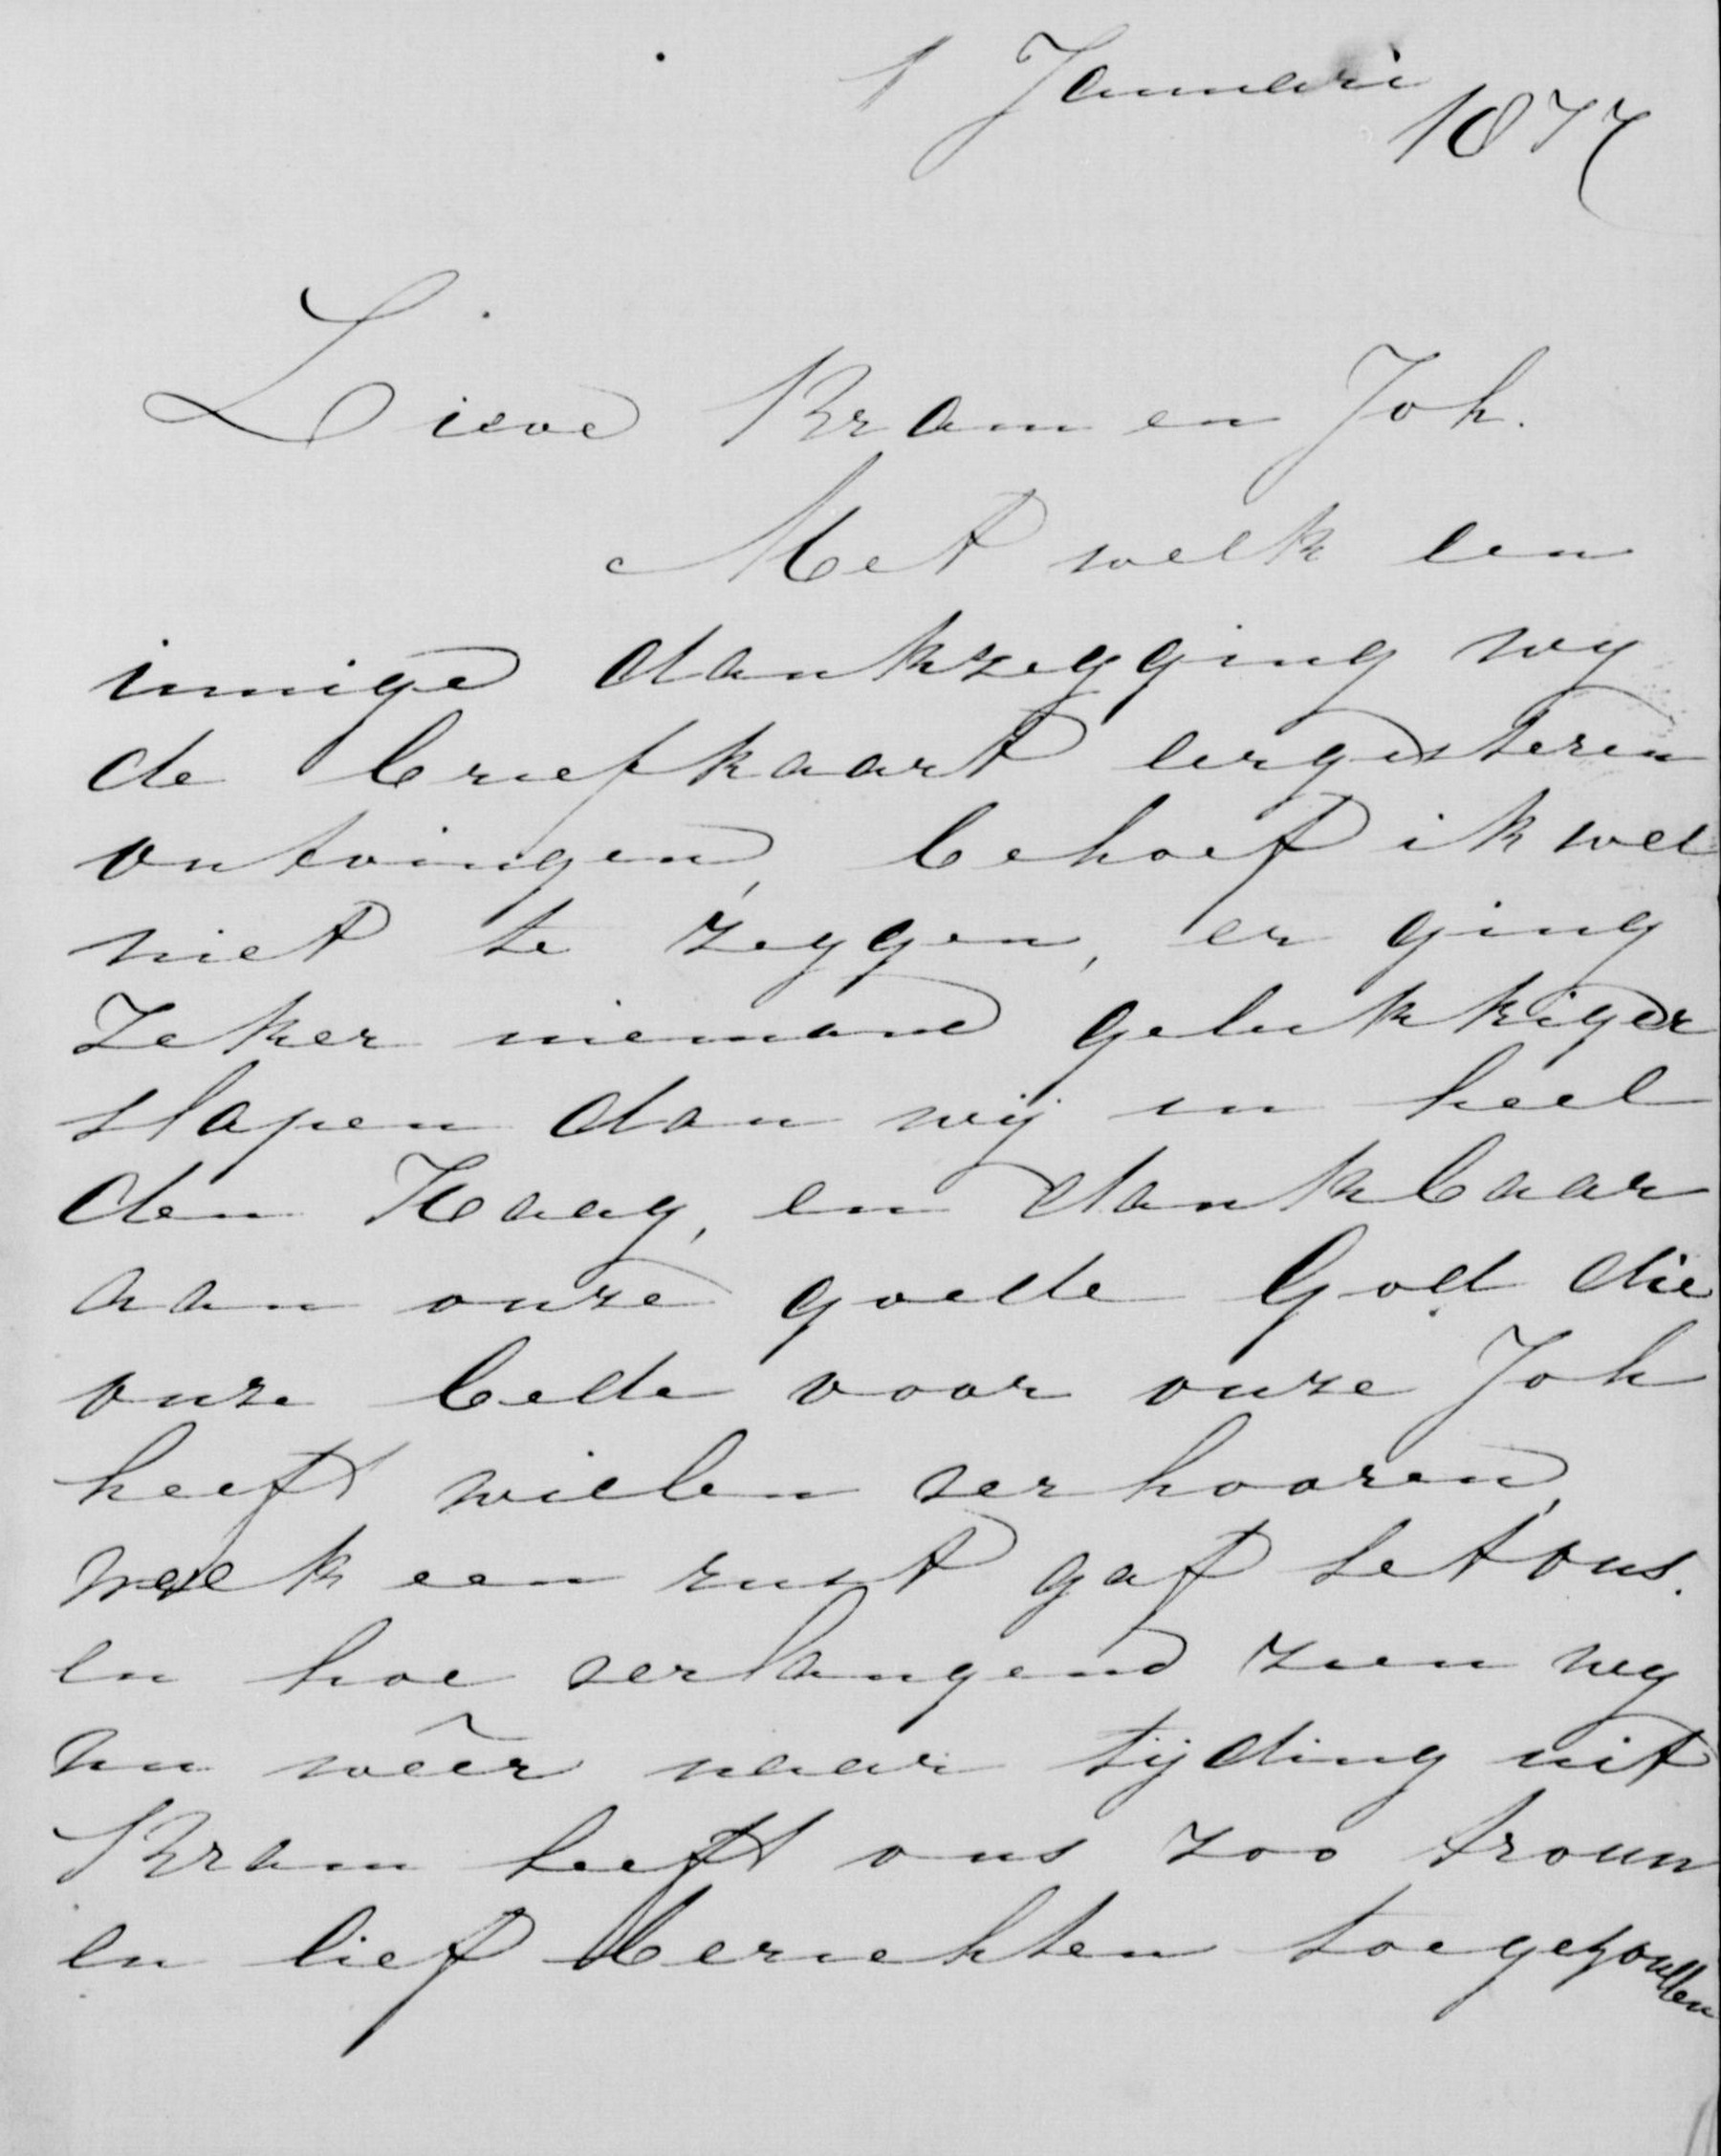 1 Januari
1877
Lieve Bram en Joh.
Met welk een
innige dankzegging wy
de briefkaart eergisteren
ontvingen, behoef ik wel
niet te zeggen, er ging
zeker niemand gelukkiger
slapen dan wij in heel
den Haag, en dankbaar
aan onze goede God die
onze bede voor onze Joh
heeft willen verhooren,
welk een rust gaf het ons.
en hoe verlangend zien wy
nu wêer naar tijding uit
Bram heeft ons zoo trouw
en lief berichten toegezonden